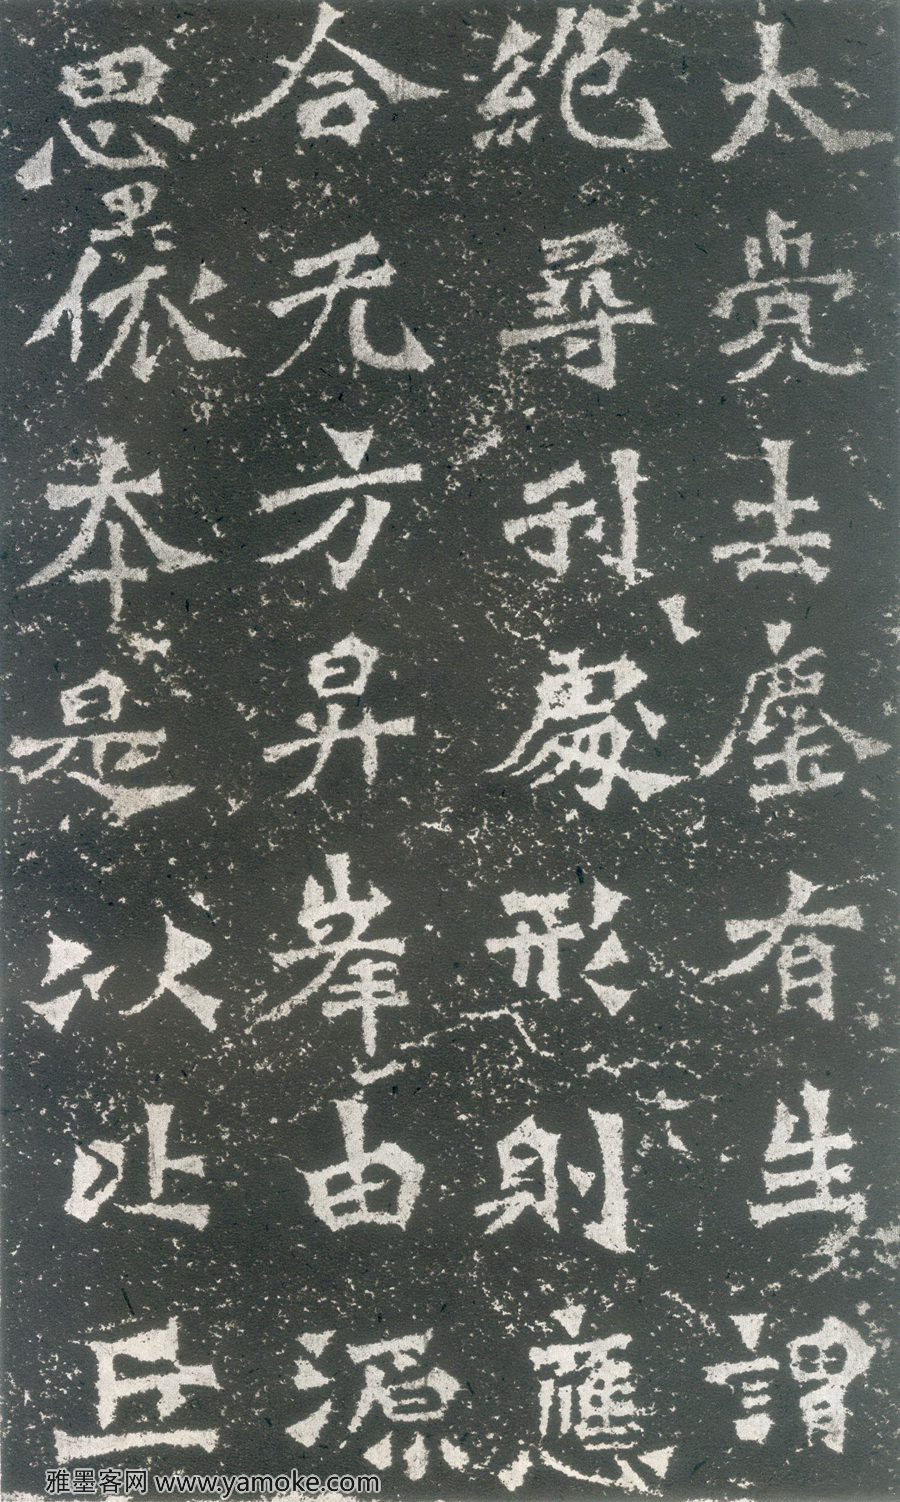 大覺去塵有生謂
絶尋刊處形則應
合无方昇峯由源
思果依本是以比丘
雅墨客网 www.yamoke.com